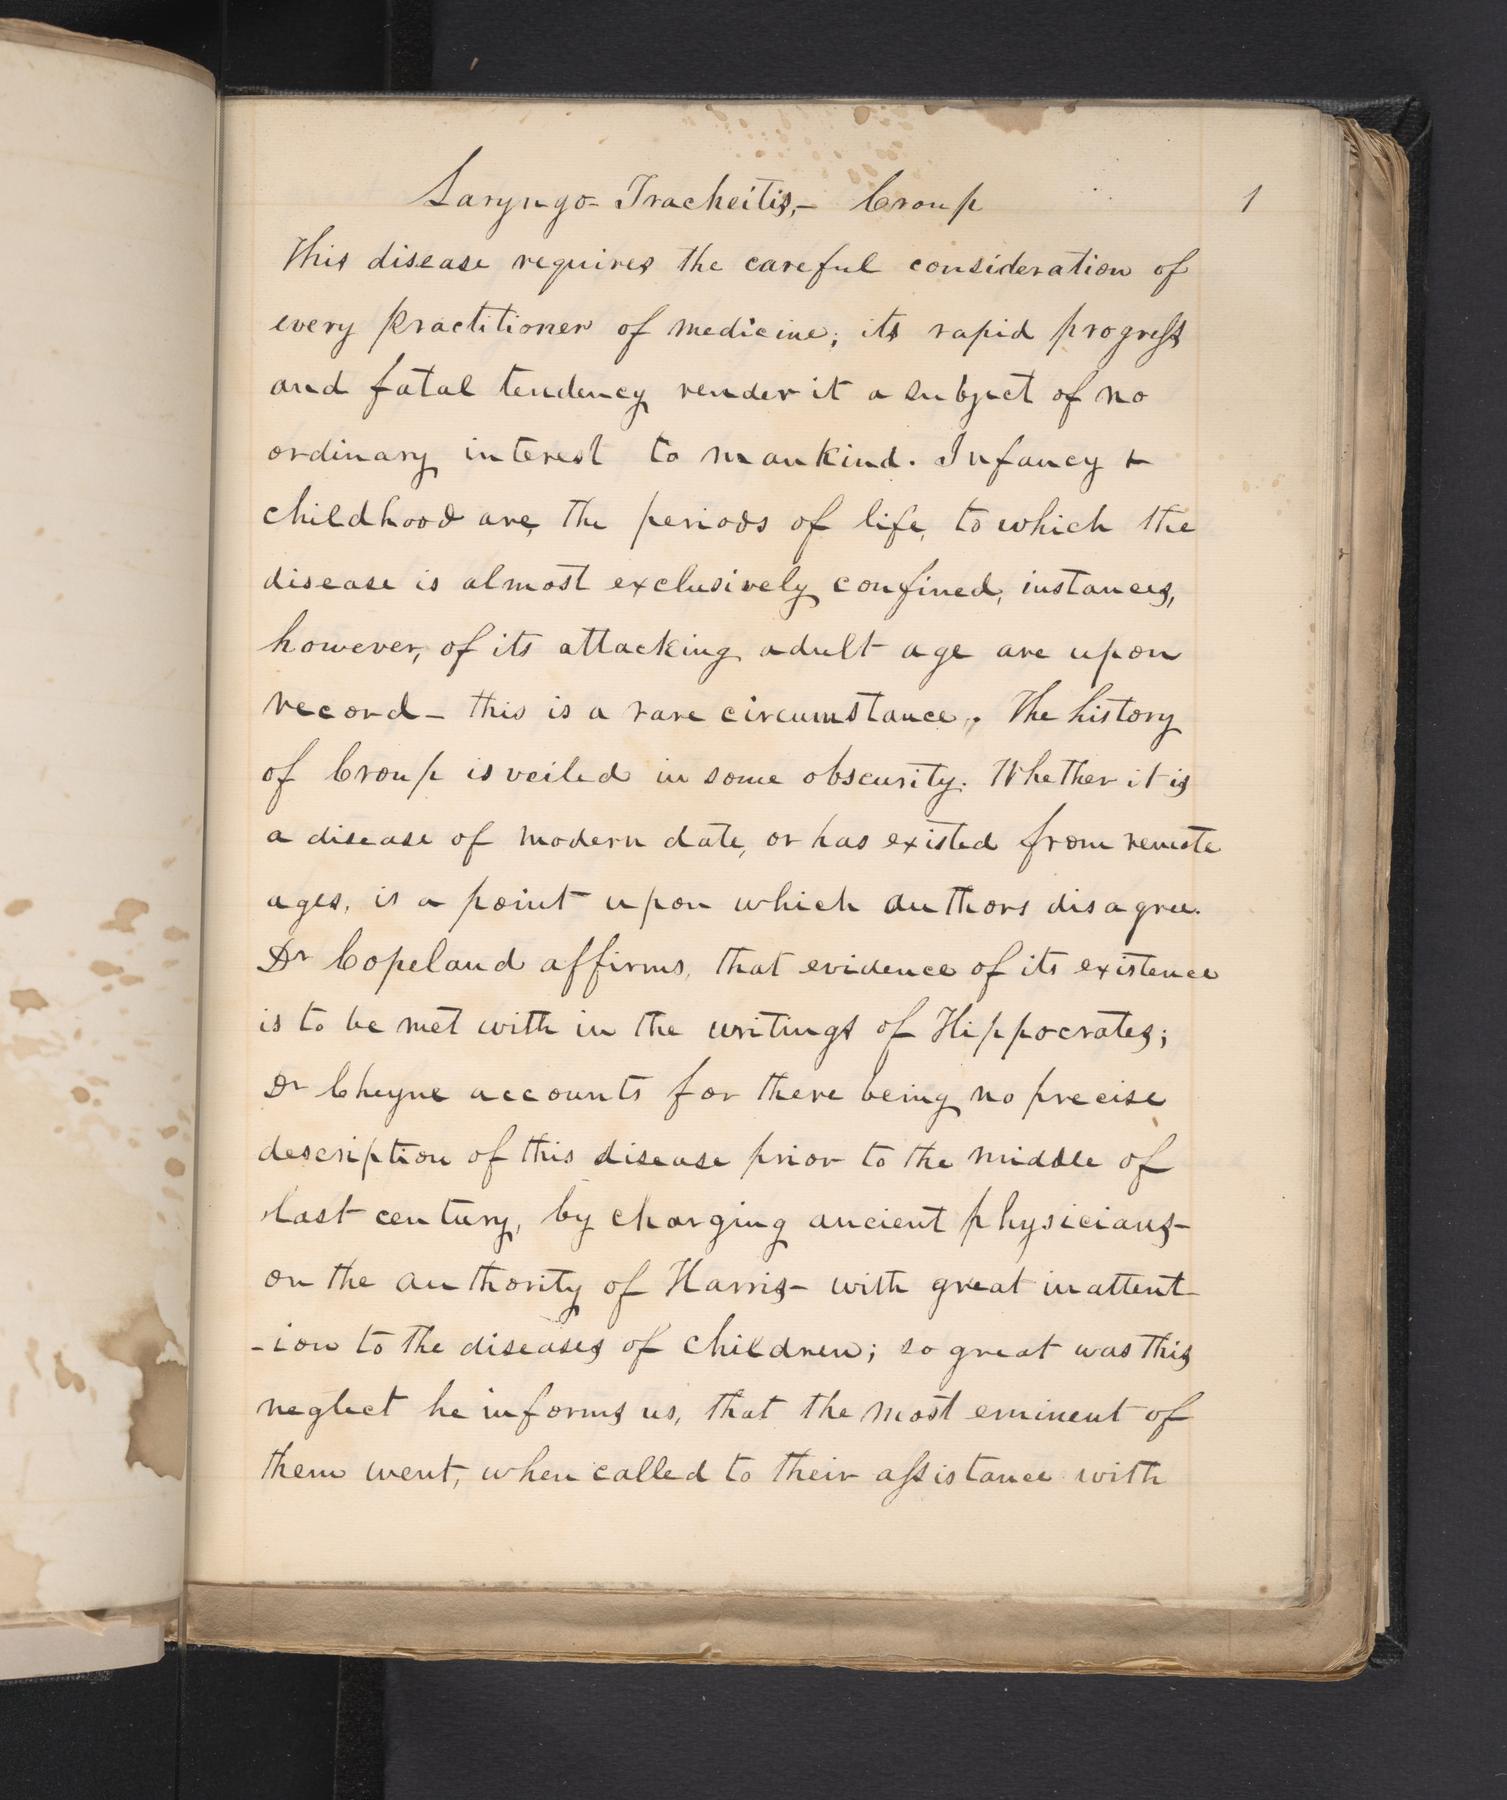 Laryngo-Tracheitis,- Croup 1
This disease requires the careful consideration of
every practitioner of medicine; its rapid progress
and fatal tendency render it a subject of no
ordinary interest to mankind. Infancy +
childhood are, the periods of life, to which the
disease is almost exclusively confined, instances,
however, of its attacking adult age are upon
record- this is a rare circumstance,. The history
of Croup is veiled in some obscurity. Whether it is
a disease of modern date, or has existed from remote
ages, is a point upon which authors disagree.
Dr Copeland affirms, that evidence of its existence
is to be met with in the writings of Hippocrates;
Dr Cheyne accounts for there being no precise
description of this disease prior to the middle of
last century, by charging ancient physicians-
on the authority of Harris- with great inattent-
-ion to the diseases of children; so great was this
neglect he informs us, that the most eminent of
them went, when called to their assistance with